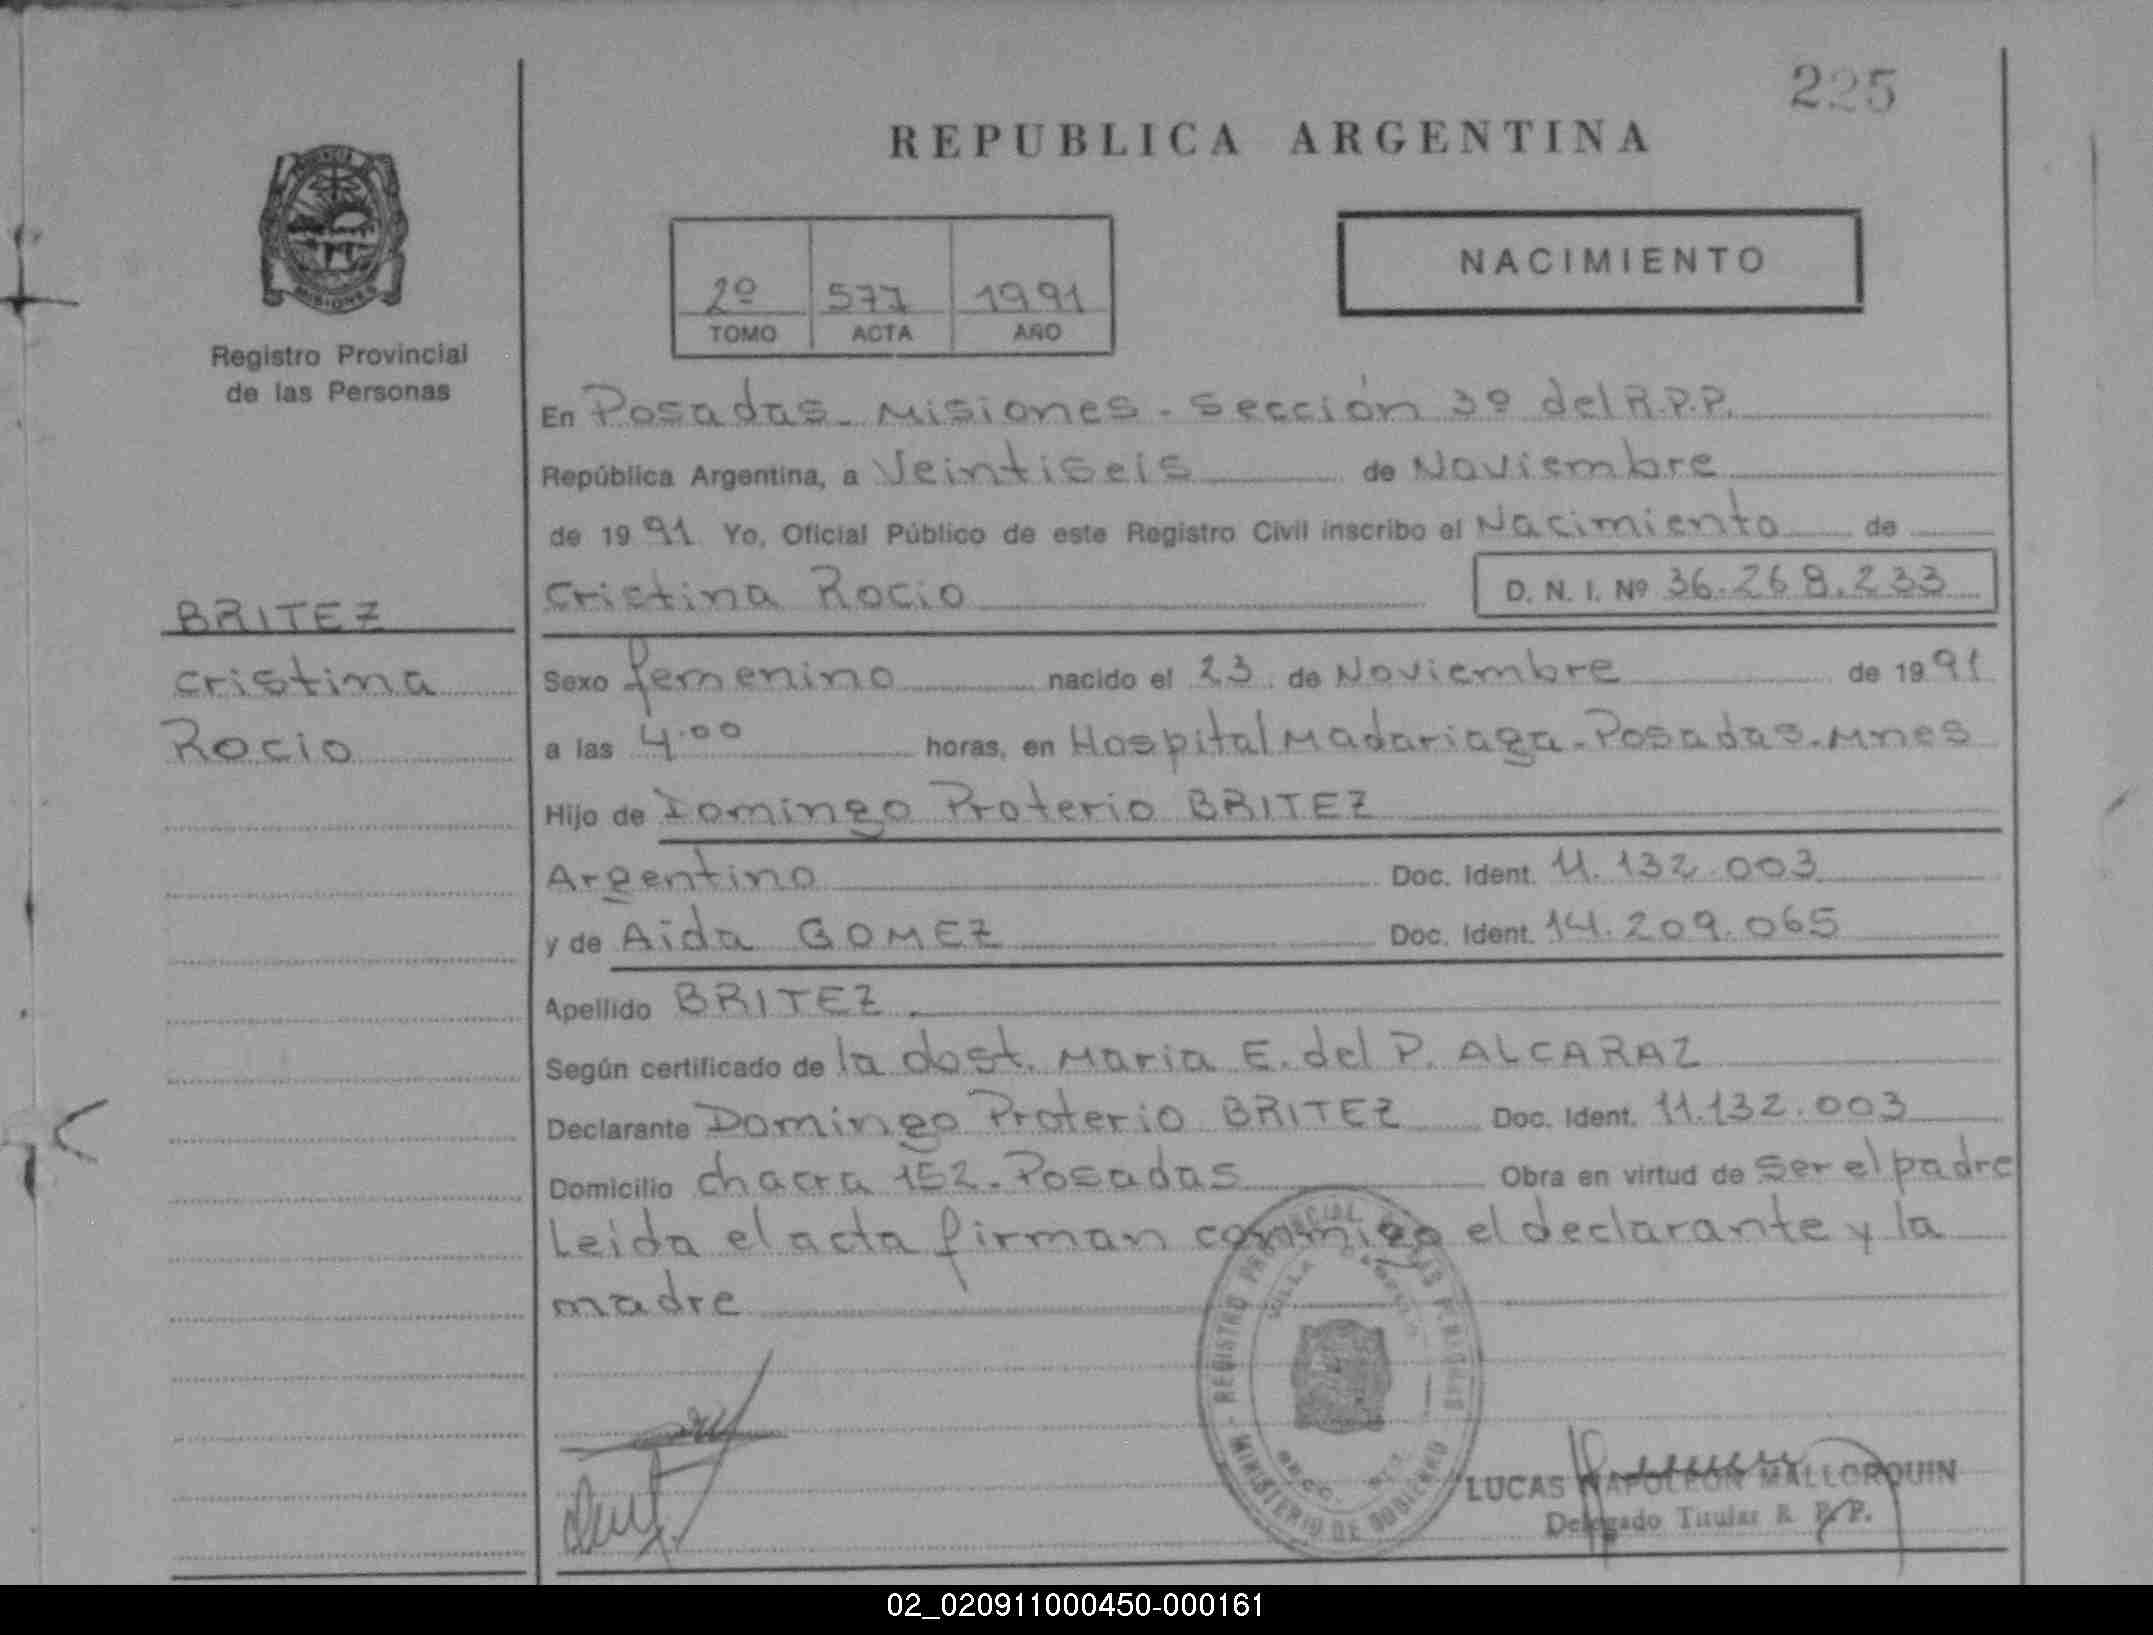 225
REPUBLICA ARGENTINA
NACIMIENTO
2º 577 1991
TOMO ACTA AÑO
MISIONES
Registro Provincial
de las Personas
En Posadas - Misiones - Sección 3º del R.P.P.
República Argentina, a Veintiseis de Noviembre
de 1991 Yo, Oficial Público de este Registro Civil inscribo el Nacimiento de
Cristina Rocio D. N. I. Nº 36.268.233
BRITEZ
Cristina
Rocio
Sexo femenino nacido el 23 de Noviembre de 1991
a las 4.00 horas, en Hospital Madariaga - Posadas. Mnes
Hijo de Domingo Proterio BRITEZ
Argentino Doc. Ident. 11.132.003
y de Aida GOMEZ Doc. Ident. 14.209.065
Apellido BRITEZ
Según certificado de la dost. Maria E. del P. ALCARAZ
Declarante Domingo Proterio BRITEZ Doc. Ident. 11.132.003
Domicilio chacra 152 - Posadas Obra en virtud de ser el padre
Leida el acta firman conmigo el declarante y la
madre
REGISTRO PROVINCIAL DE LAS PERSONAS
MINISTERIO DE GOBIERNO
LUCAS NAPOLEON MALLORQUIN
Delegado Titular R. P. P.
02_020911000450-000161